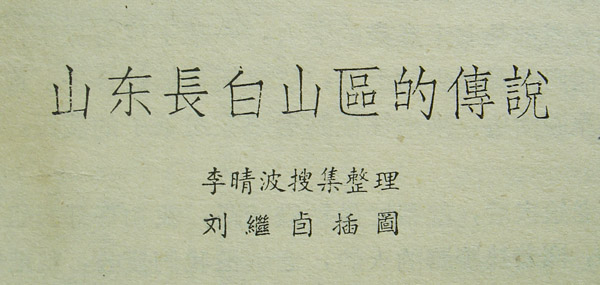 山东長白山區的傳說
李晴波搜集整理
刘繼卣插圖